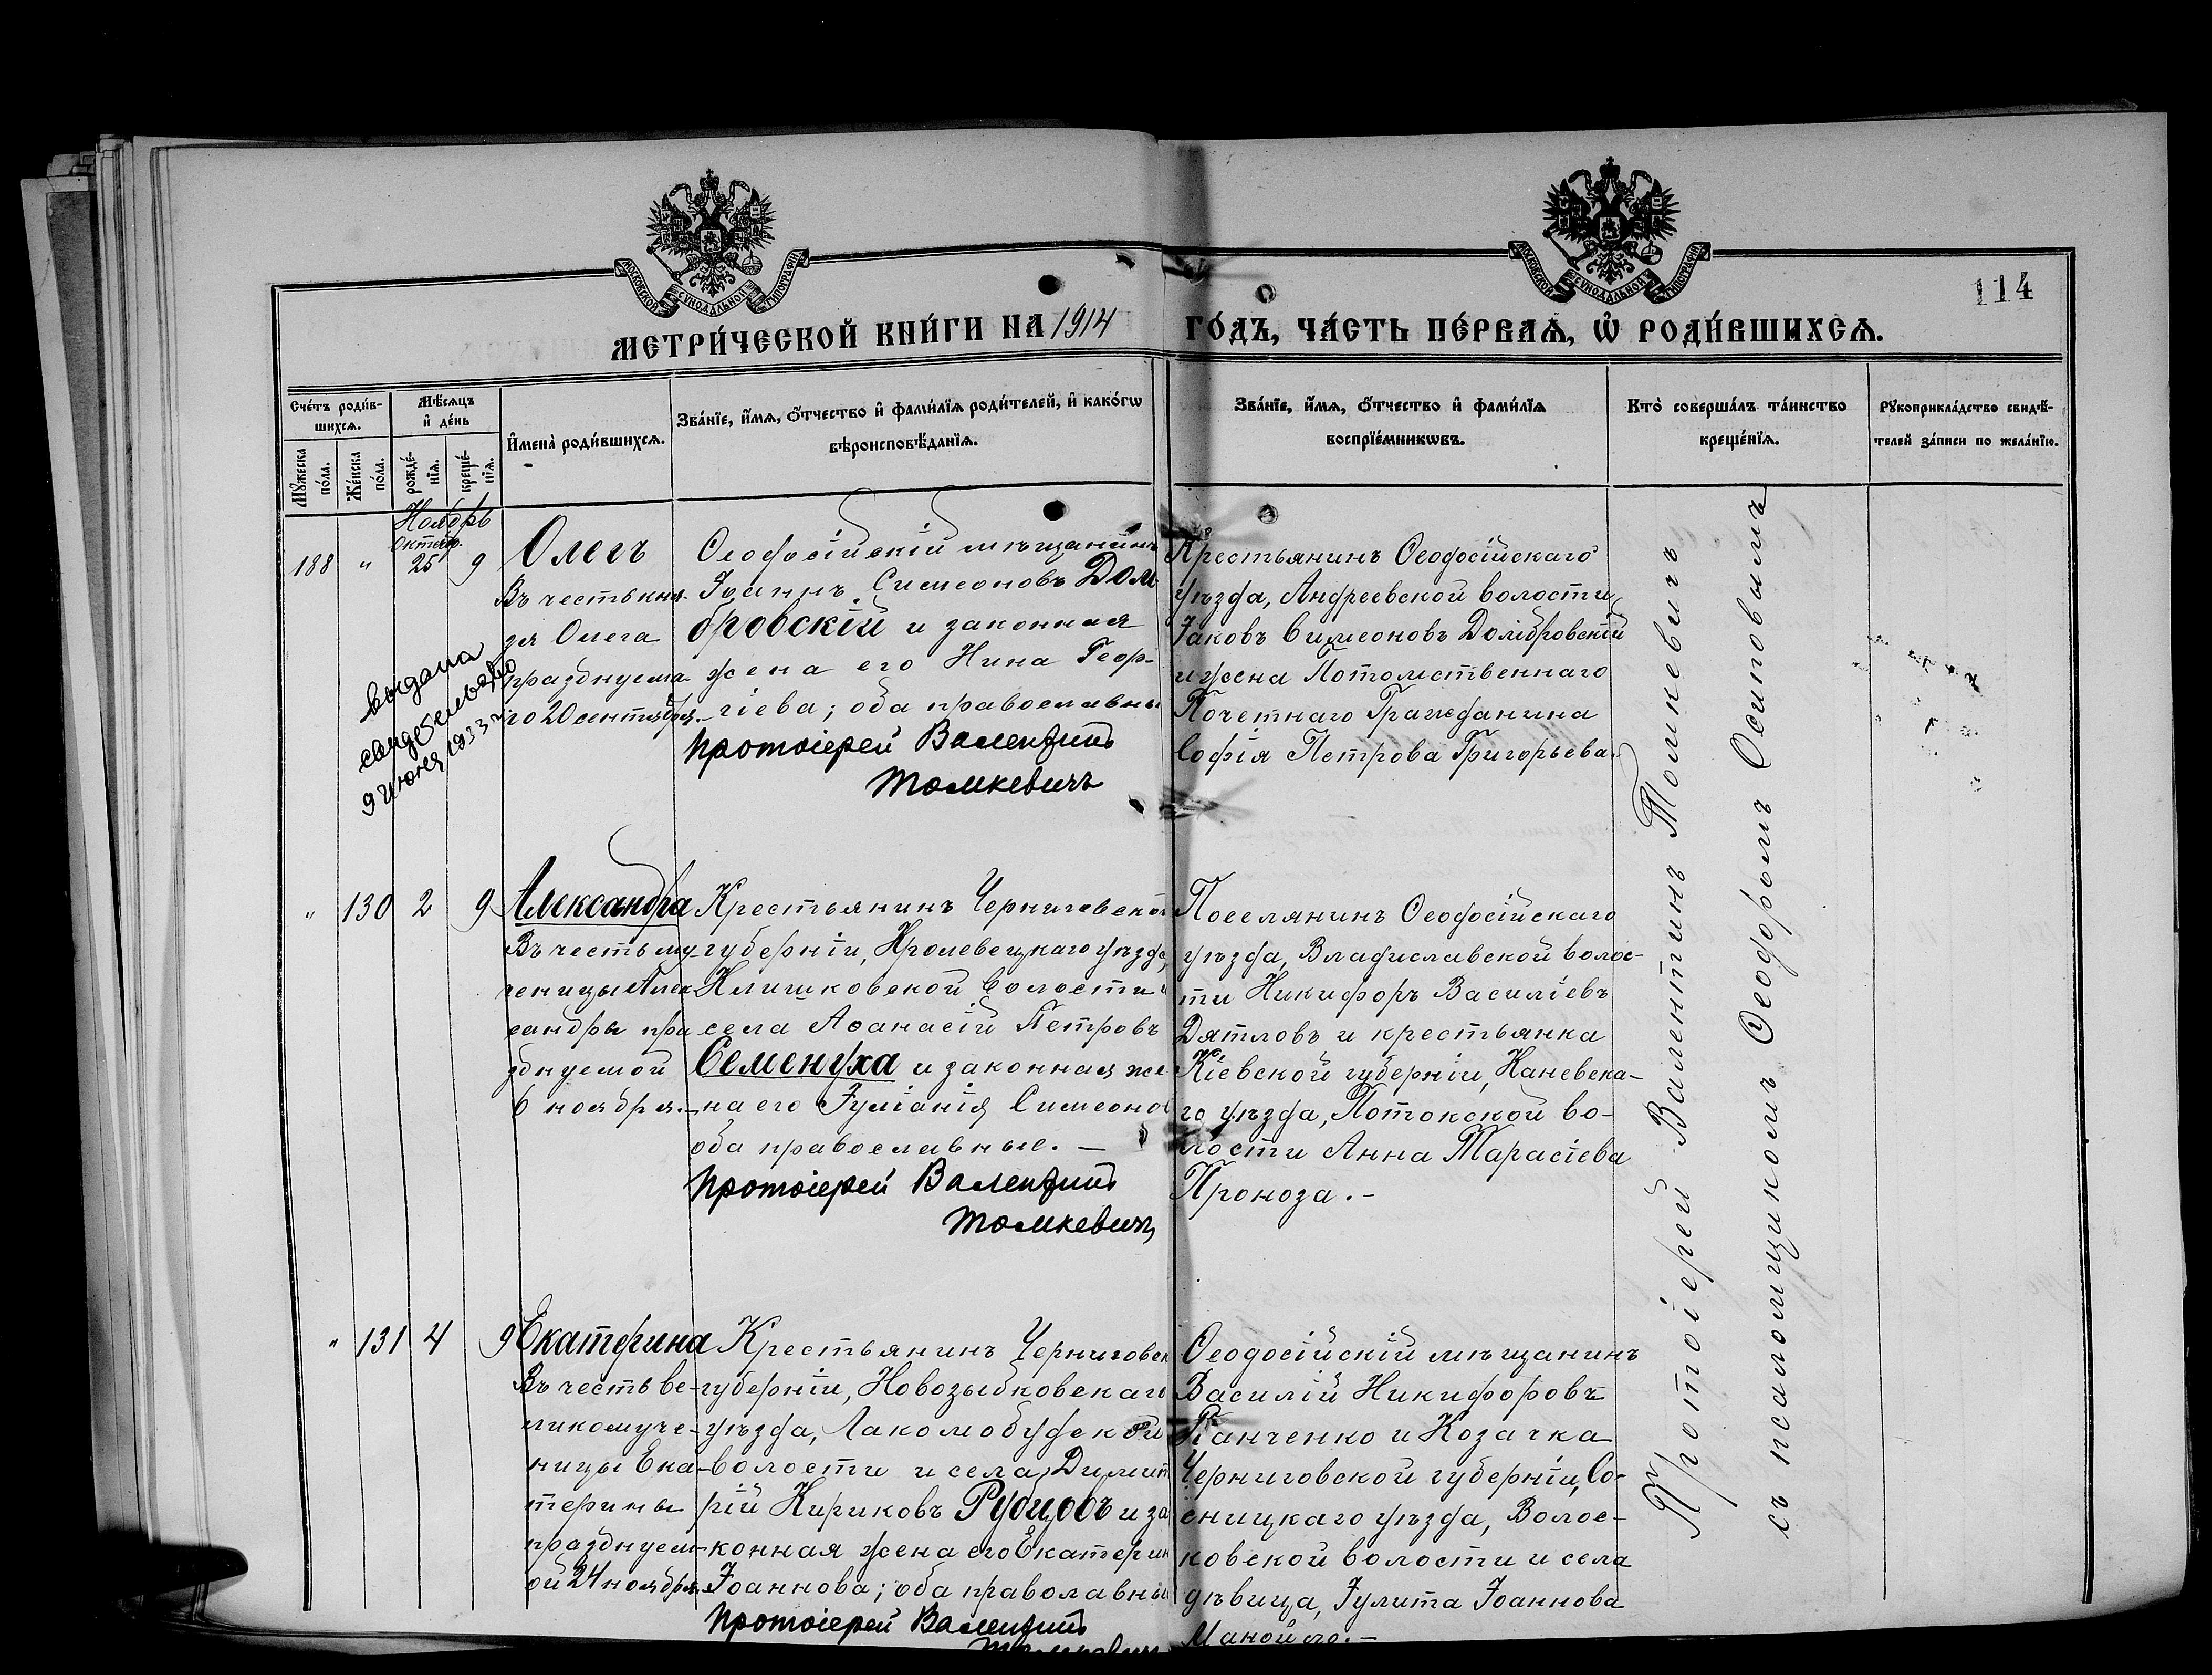 МОСКОВСКОЙ СѴНОДАЛЬНОЙ ТИПОГРАФІИ
МОСКОВСКОЙ СѴНОДАЛЬНОЙ ТИПОГРАФІИ
114
МЕТРИ́ЧЕСКОЙ КНИ́ГИ НА 1914 ГО́ДЪ, ЧА́СТЬ ПЕ́РВАѦ, Ѡ РОДИ́ВШИХСѦ.
Сче́тъ роди́в-
шихсѧ.
Мꙋжеска по́ла.
Же́нска по́ла.
Мѣ́сѧцъ
и де́нь
рожде́-
нїѧ.
креще́-
нїѧ.
Имена̀ роди́вшихсѧ.
Зва́нїе, и́мѧ, о́тчество и фами́лїѧ роди́телей, и како́гѡ
вѣроисповѣ́данїѧ.
Зва́нїе, и́мѧ, о́тчество и фами́лїѧ
воспрїе́мникѡвъ.
Кто̀ соверша́лъ та́инство
креще́нїѧ.
Рꙋкоприкла́дство свидѣ́-
телей за́писи по жела́нїю.
Ноябрь
188 " 25 9
Олегъ
Въ честь кня-
зя Олега
празднуема-
го 20 сентября.
выдана
свидетельство
9 июня 1933 г
Ѳеодосійскій мѣщанинъ
Іоаннъ Симеоновъ Дом-
бровскій и законная
жена его Нина Геор-
гіева; оба православны
Протоіерей Валентинъ
Томкевичъ
Крестьянинъ Ѳеодосійскаго
уѣзда, Андреевской волости
Іаковъ Симеоновъ Домбровскій
и жена Потомственнаго
Почетнаго Гражданина
Софія Петрова Григорьева.
" 130 2 9
Александра
Въ честь му-
ченицы Алек
сандры пра
зднуемой
6 ноября.-
Крестьянинъ Черниговской
губерніи, Кролевецкаго уѣзда,
Клишковской волости и
села Аѳанасій Петровъ
Семенуха и законная же
на его Іуліанія Симеонов
оба православные. –
Протоіерей Валентинъ
Томкевичъ
Поселянинъ Ѳеодосійскаго
уѣзда, Владиславской волос-
ти Никифоръ Василіевъ
Дятловъ и крестьянка
Кіевской губерніи, Каневска-
го уѣзда, Потокской во-
лости Анна Тарасіева
Проноза.-
" 131 4 9
Екатерина
Въ честь ве-
ликомуче-
ницы Ека-
терины
празднуем-
ой 24 ноября.
Крестьянинъ Черниговск
губерніи, Новозыбковскаго
уѣзда, Лакомобудской
волости и села, Димит
рій Кириковъ Рубцовъ и за
конная жена его Екатерин
Іоаннова; оба праволавны
Протоіерей Валентинъ
Томкевич
Ѳеодосійскій мѣщанинъ
Василій Никифоровъ
Панченко и Козачка
Черниговской губерніи, Со-
сницкаго уѣзда, Волос-
ковской волости и села
дѣвица, Іулита Іоаннова
Протоіерей Валентинъ Томкевичъ
съ псаломщикомъ Ѳеодоромъ Осиповымъ